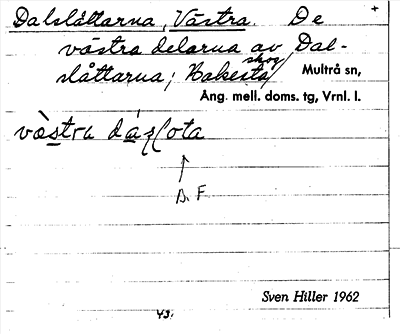 Dalslåttarna, Västra. De +
västra delarna av Dal-
slåttarna; skog
Multrå sn,
Ång. mell. doms. tg, Vrnl. l.
västra
A. F.
Sven Hiller 1962
43.